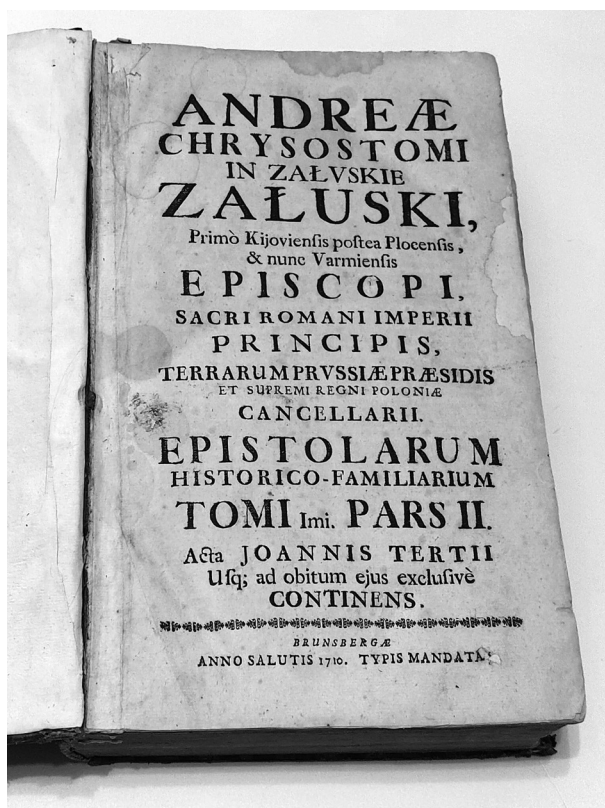 ANDREÆ
CHRYSOSTOMI
IN ZAŁVSKIE
ZAŁUSKI,
Primò Kijovienſis poſtea Plocenſis,
& nunc Varmienſis
EPISCOPI,
SACRI ROMANI IMPERII
PRINCIPIS,
TERRARUM PRVSSIÆ PRÆSIDIS
ET SUPREMI REGNI POLONIÆ
CANCELLARII.
EPISTOLARUM
HISTORICO-FAMILIARIUM
TOMI Imi. PARS II.
Acta JOANNIS TERTII
Uſq; ad obitum ejus excluſivè
CONTINENS.
BRUNSBERGÆ
ANNO SALUTIS 1710. TYPIS MANDATA.